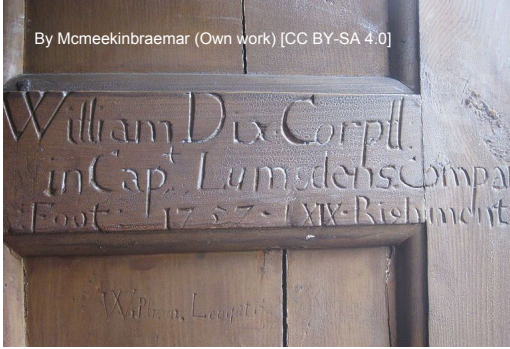 By Mcmeekinbraemar (Own work) [CC BY-SA 4.0]
William Dix Corpll.
in Capt. Lumsdens Compa
Foot 1757 XIX Righment